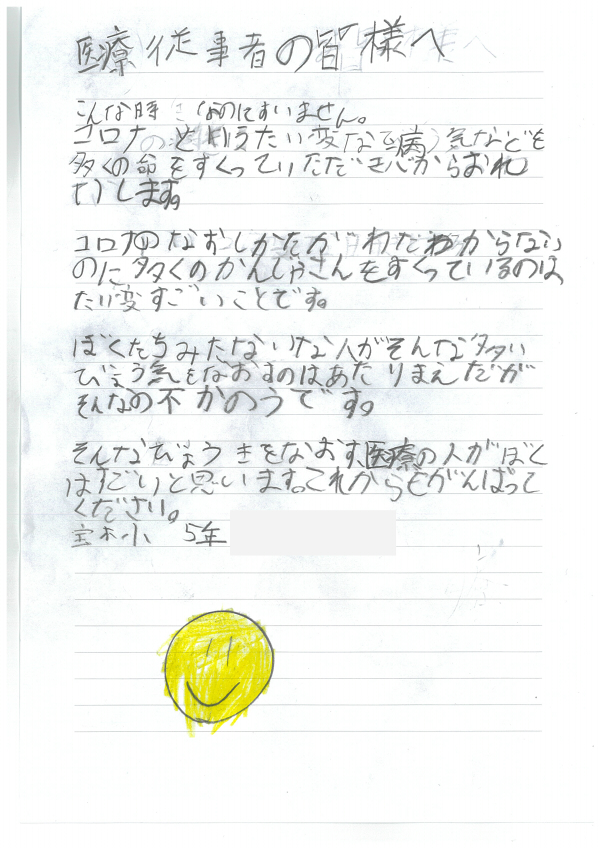 医療従事者の皆様へ
こんな時きなのにすいません。
コロナのと同たい変な病気などを
多くの命をすくっていただき心からおれ
いします。
コロナのなおしかたがわだわからない
のに多くのかんじゃさんをすくっているのは、
たい変すごいことです。
ぼくたちみたないな人がそんな多い
びょう気をなおすのはあたりまえだが
そんなの不かのうです。
そんなびょうきをなおす、医療の人がぼく
はすごいと思います。これからもがんばって
ください。
宝木小 5年